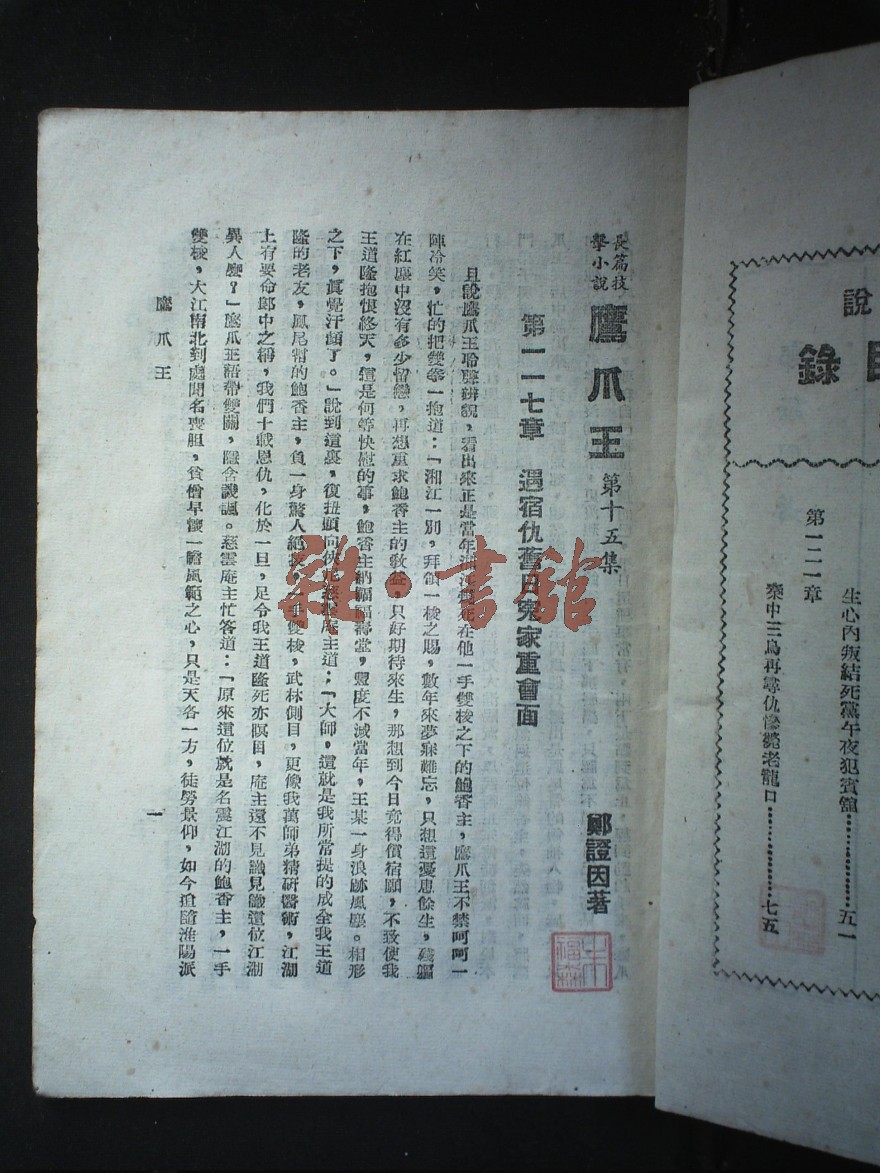 說
目
錄
生心內叛結死黨午夜犯賓館…………五一
第一二一章
寨中三鳥再尋仇慘斃老龍口…………七五
長篇技
擊小說
鷹爪王 第十五集
鄭證因著
第一一七章 遇宿仇舊日冤家重會面
且說鷹爪王聆聽辭貌，看出來正是當年湘江幾死在他一手雙梭之下的鮑香主，鷹爪王不禁呵呵一
陣冷笑，忙的把雙拳一抱道：「湘江一別，拜領一梭之賜，數年來夢寐難忘，只想這憂患餘生，殘軀
在紅塵中沒有多少留戀，再想重求鮑香主的教益，只好期待來生，那想到今日竟得償宿願，不致使我
王道隆抱恨終天，這是何等快慰的事，鮑香主納福福壽堂，豐度不減當年，王某一身浪跡風塵。相形
之下，眞覺汗顏了。」說到這裏，復扭頭向俠尼慈雲庵主道：「大師，這就是我所常提的成全我王道
隆的老友，鳳尾幫的鮑香主，負一身驚人絕技，一手雙梭，武林側目，更像我萬師弟精研醫術，江湖
上有要命郎中之稱，我們十載恩仇，化於一旦，足令我王道隆死亦瞑目，庵主還不見識見識這位江湖
異人麼？」鷹爪王語帶雙關，隱含譏諷。慈雲庵主忙答道：「原來這位就是名震江湖的鮑香主，一手
雙梭，大江南北到處聞名喪胆，貧僧早懷一瞻風範之心，只是天各一方，徒勞景仰，如今追隨淮陽派
鷹爪王
一
雜·書館